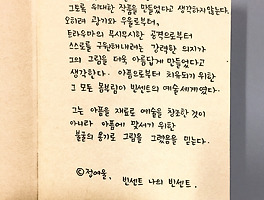 그토록 위대한 작품을 만들었다고 생각하지않는다.
오히려 광기와 우울로부터,
트라우마의 무시무시한 공격으로부터
스스로를 구원해내려는 강력한 의지가
그의 그림을 더욱 아름답게 만들었다고
생각한다. 아픔으로부터 치유되기 위한
그 모든 몸부림이 빈센트의 예술세계였다.
그는 아픔을 재료로 예술을 창조한 것이
아니라 아픔에 맞서기 위한
불굴의 용기로 그림을 그렸음을 믿는다.
©정여울, 빈센트 나의 빈센트.